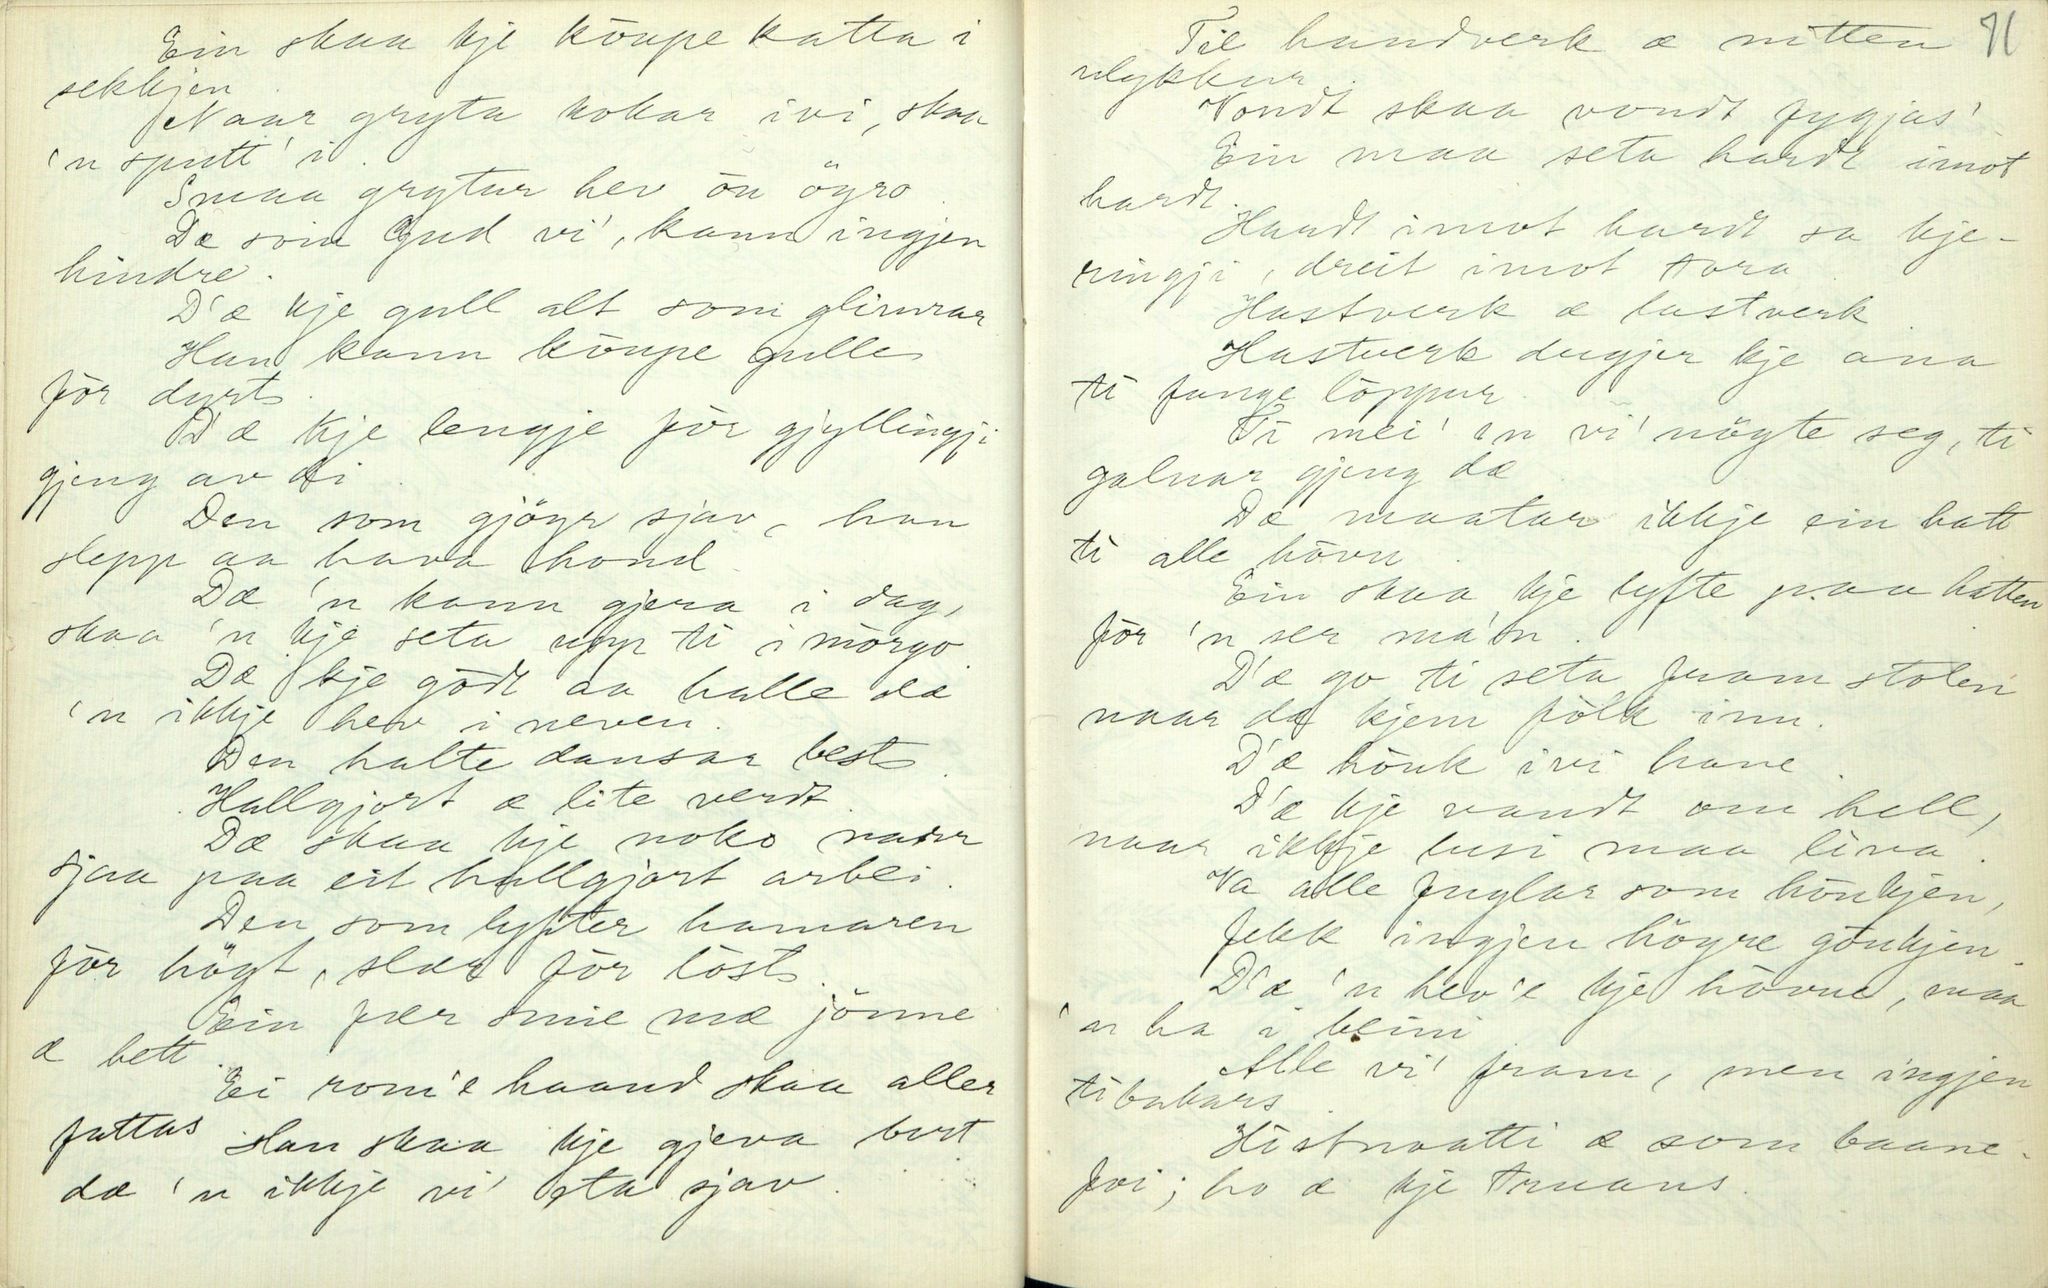 Ein skaa kje kōupe katta i
sekkjen
Naar gryta kokar ivi, skaa
'n sputt' i.
Smaa grytur hev ōu öyro.
Dæ som Gud vi', kann ingjen
hindre.
D'æ kje gull alt som glimrar
Han kann kōupe gulle
fòr dyrt.
D'æ kje lengje fòr gjyllingji
gjeng av di.
Den som gjöyr sjav, han
slepp aa hava hond.
Dæ 'n kann gjera i dag,
skaa 'n kje seta upp ti i mòrgo.
Dæ kje gōdt aa halle dæ
'n ikkje hev i neven.
Den halte dansar best.
Hallgjort æ lite verdt.
Dæ skaa kje noko naur
sjaa paa eit hallgjort arbei.
Den som lyfter hamaren
fòr högt, slær fòr löst.
Ein fær smie mæ jönne
æ hett.
Ei rom'e haand skaa aller
fattas
Han skaa kje gjeva burt
dæ 'n ikkje vi' eta sjav.
71
Til handverk æ nitten
ulykkur.
Vondt skaa vondt fygjas'
Ein maa seta hardt imot
hardt.
Hardt imot hardt sa kje-
ringji, dreit imot tora.
Hastverk æ lastverk.
Hastverk dugjer kje ana
ti fange löppur.
Ti mei' 'n vi' nögte seg, ti
galnar gjeng dæ
Dæ maatar ikkje ein hatt
ti alle hōvu.
Ein skaa kje lyfte paa hatten
fòr 'n ser ma'n.
D'æ go ti seta fram stolen
naar dæ kjem fòlk inn.
D'æ hōuk ivi hane.
D'æ kje vandt om hell,
naar ikkje lusi maa liva.
Va alle fuglar som hōukjen,
fekk ingjen högre gōukjen.
D'æ 'n hev'e kje hōvue, maa
'n ha i beini
Alle vi' fram, men ingjen
tibakars.
Histnaatti æ som baane-
foi; ho æ kje truans.